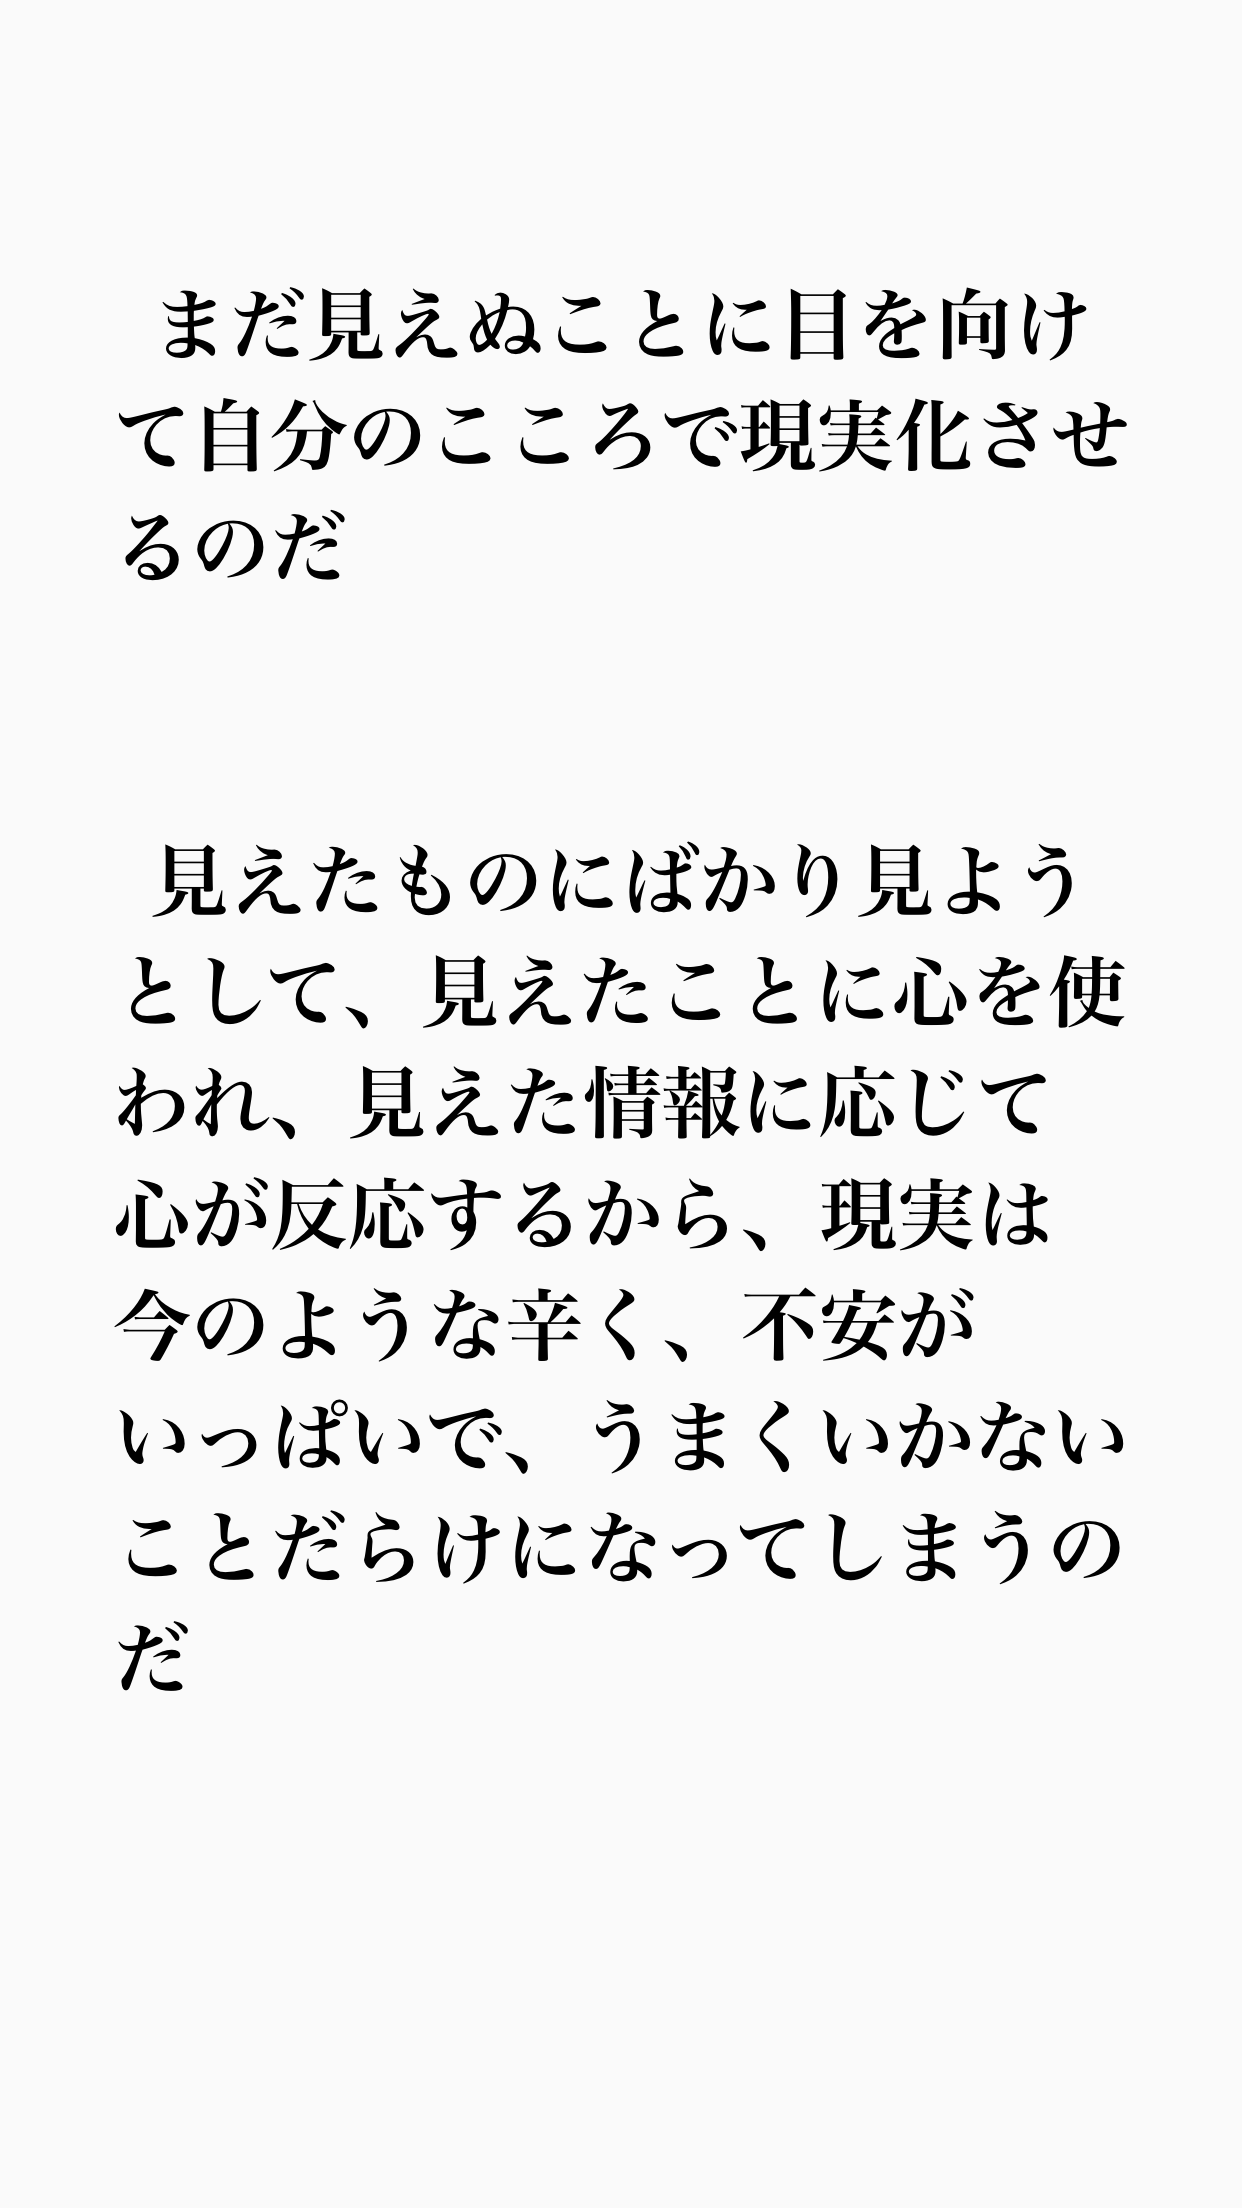 まだ見えぬことに目を向け
て自分のこころで現実化させ
るのだ
見えたものにばかり見よう
として、見えたことに心を使
われ、見えた情報に応じて
心が反応するから、現実は
今のような辛く、不安が
いっぱいで、うまくいかない
ことだらけになってしまうの
だ